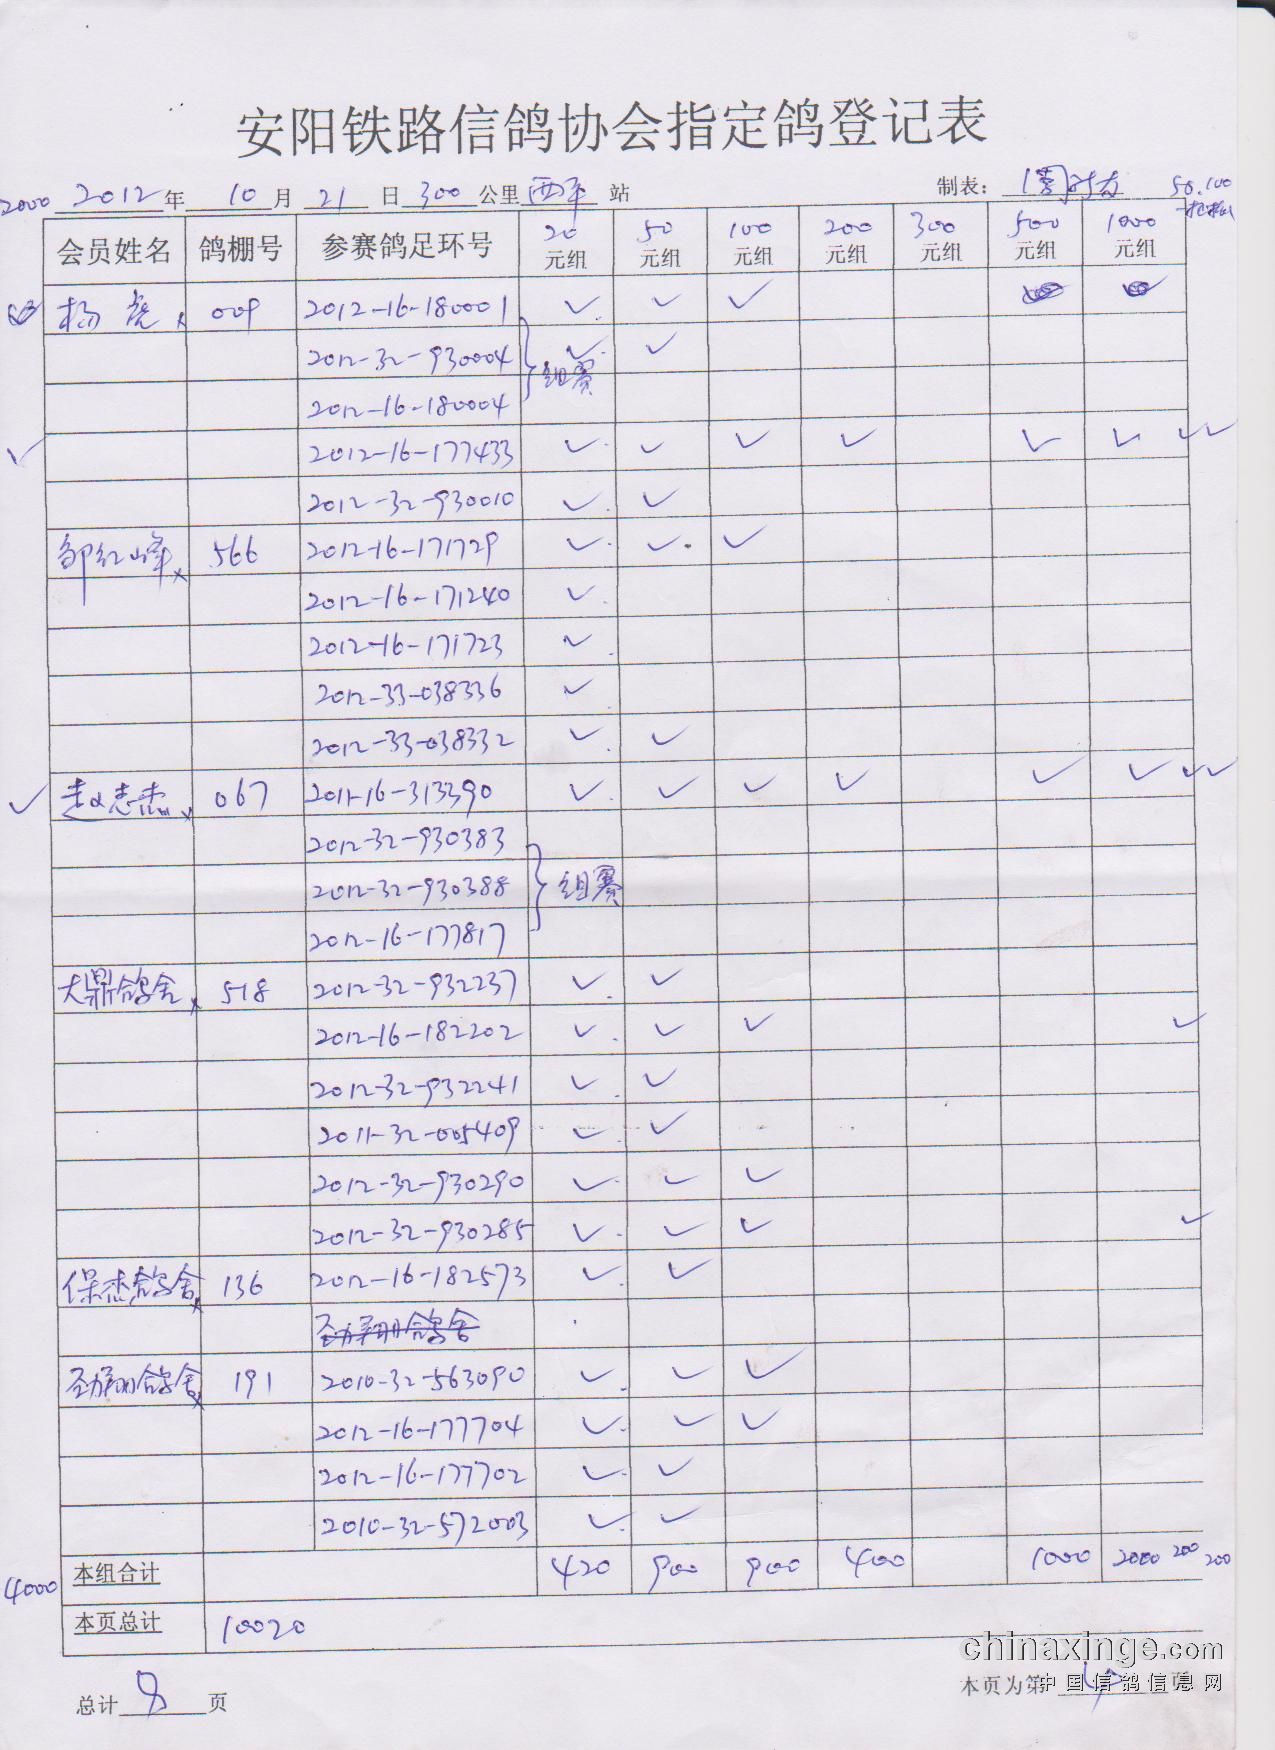 安阳铁路信鸽协会指定鸽登记表
2000 2012年 10月 21日 300公里 西平 站 制表： 50.100
会员姓名 鸽棚号 参赛鸽足环号 20元组 50元组 100元组 200元组 300元组 500元组 1000元组
杨虎 009 2012-16-180001 ✓ ✓ ✓
2012-32-930004 ✓ ✓
组赛
2012-16-180004
✓ 2012-16-177433 ✓ ✓ ✓ ✓ ✓ ✓ ✓✓
2012-32-930010 ✓ ✓
邹红峰 566 2012-16-171729 ✓ ✓ ✓
2012-16-171240 ✓
2012-16-171723 ✓
2012-33-038336 ✓
2012-33-038332 ✓ ✓
✓ 赵志杰 067 2011-16-313390 ✓ ✓ ✓ ✓ ✓ ✓ ✓✓
2012-32-930383
2012-32-930388 组赛
2012-16-177817
大鼎鸽舍 518 2012-32-932237 ✓ ✓
2012-16-182202 ✓ ✓ ✓ ✓
2012-32-932241 ✓ ✓
2011-32-005409 ✓ ✓
2012-32-930290 ✓ ✓ ✓
2012-32-930285 ✓ ✓ ✓ ✓
保杰鸽舍 136 2012-16-182573 ✓ ✓
劲翔鸽舍
劲翔鸽舍 191 2010-32-563090 ✓ ✓ ✓
2012-16-177704 ✓ ✓ ✓
2012-16-177702 ✓ ✓
2010-32-572003 ✓ ✓
4000 本组合计 420 900 900 400 1000 2000 200 200
本页总计 10020
chinaxinge.com
总计 8 页 本页为第 页
中国信鸽信息网